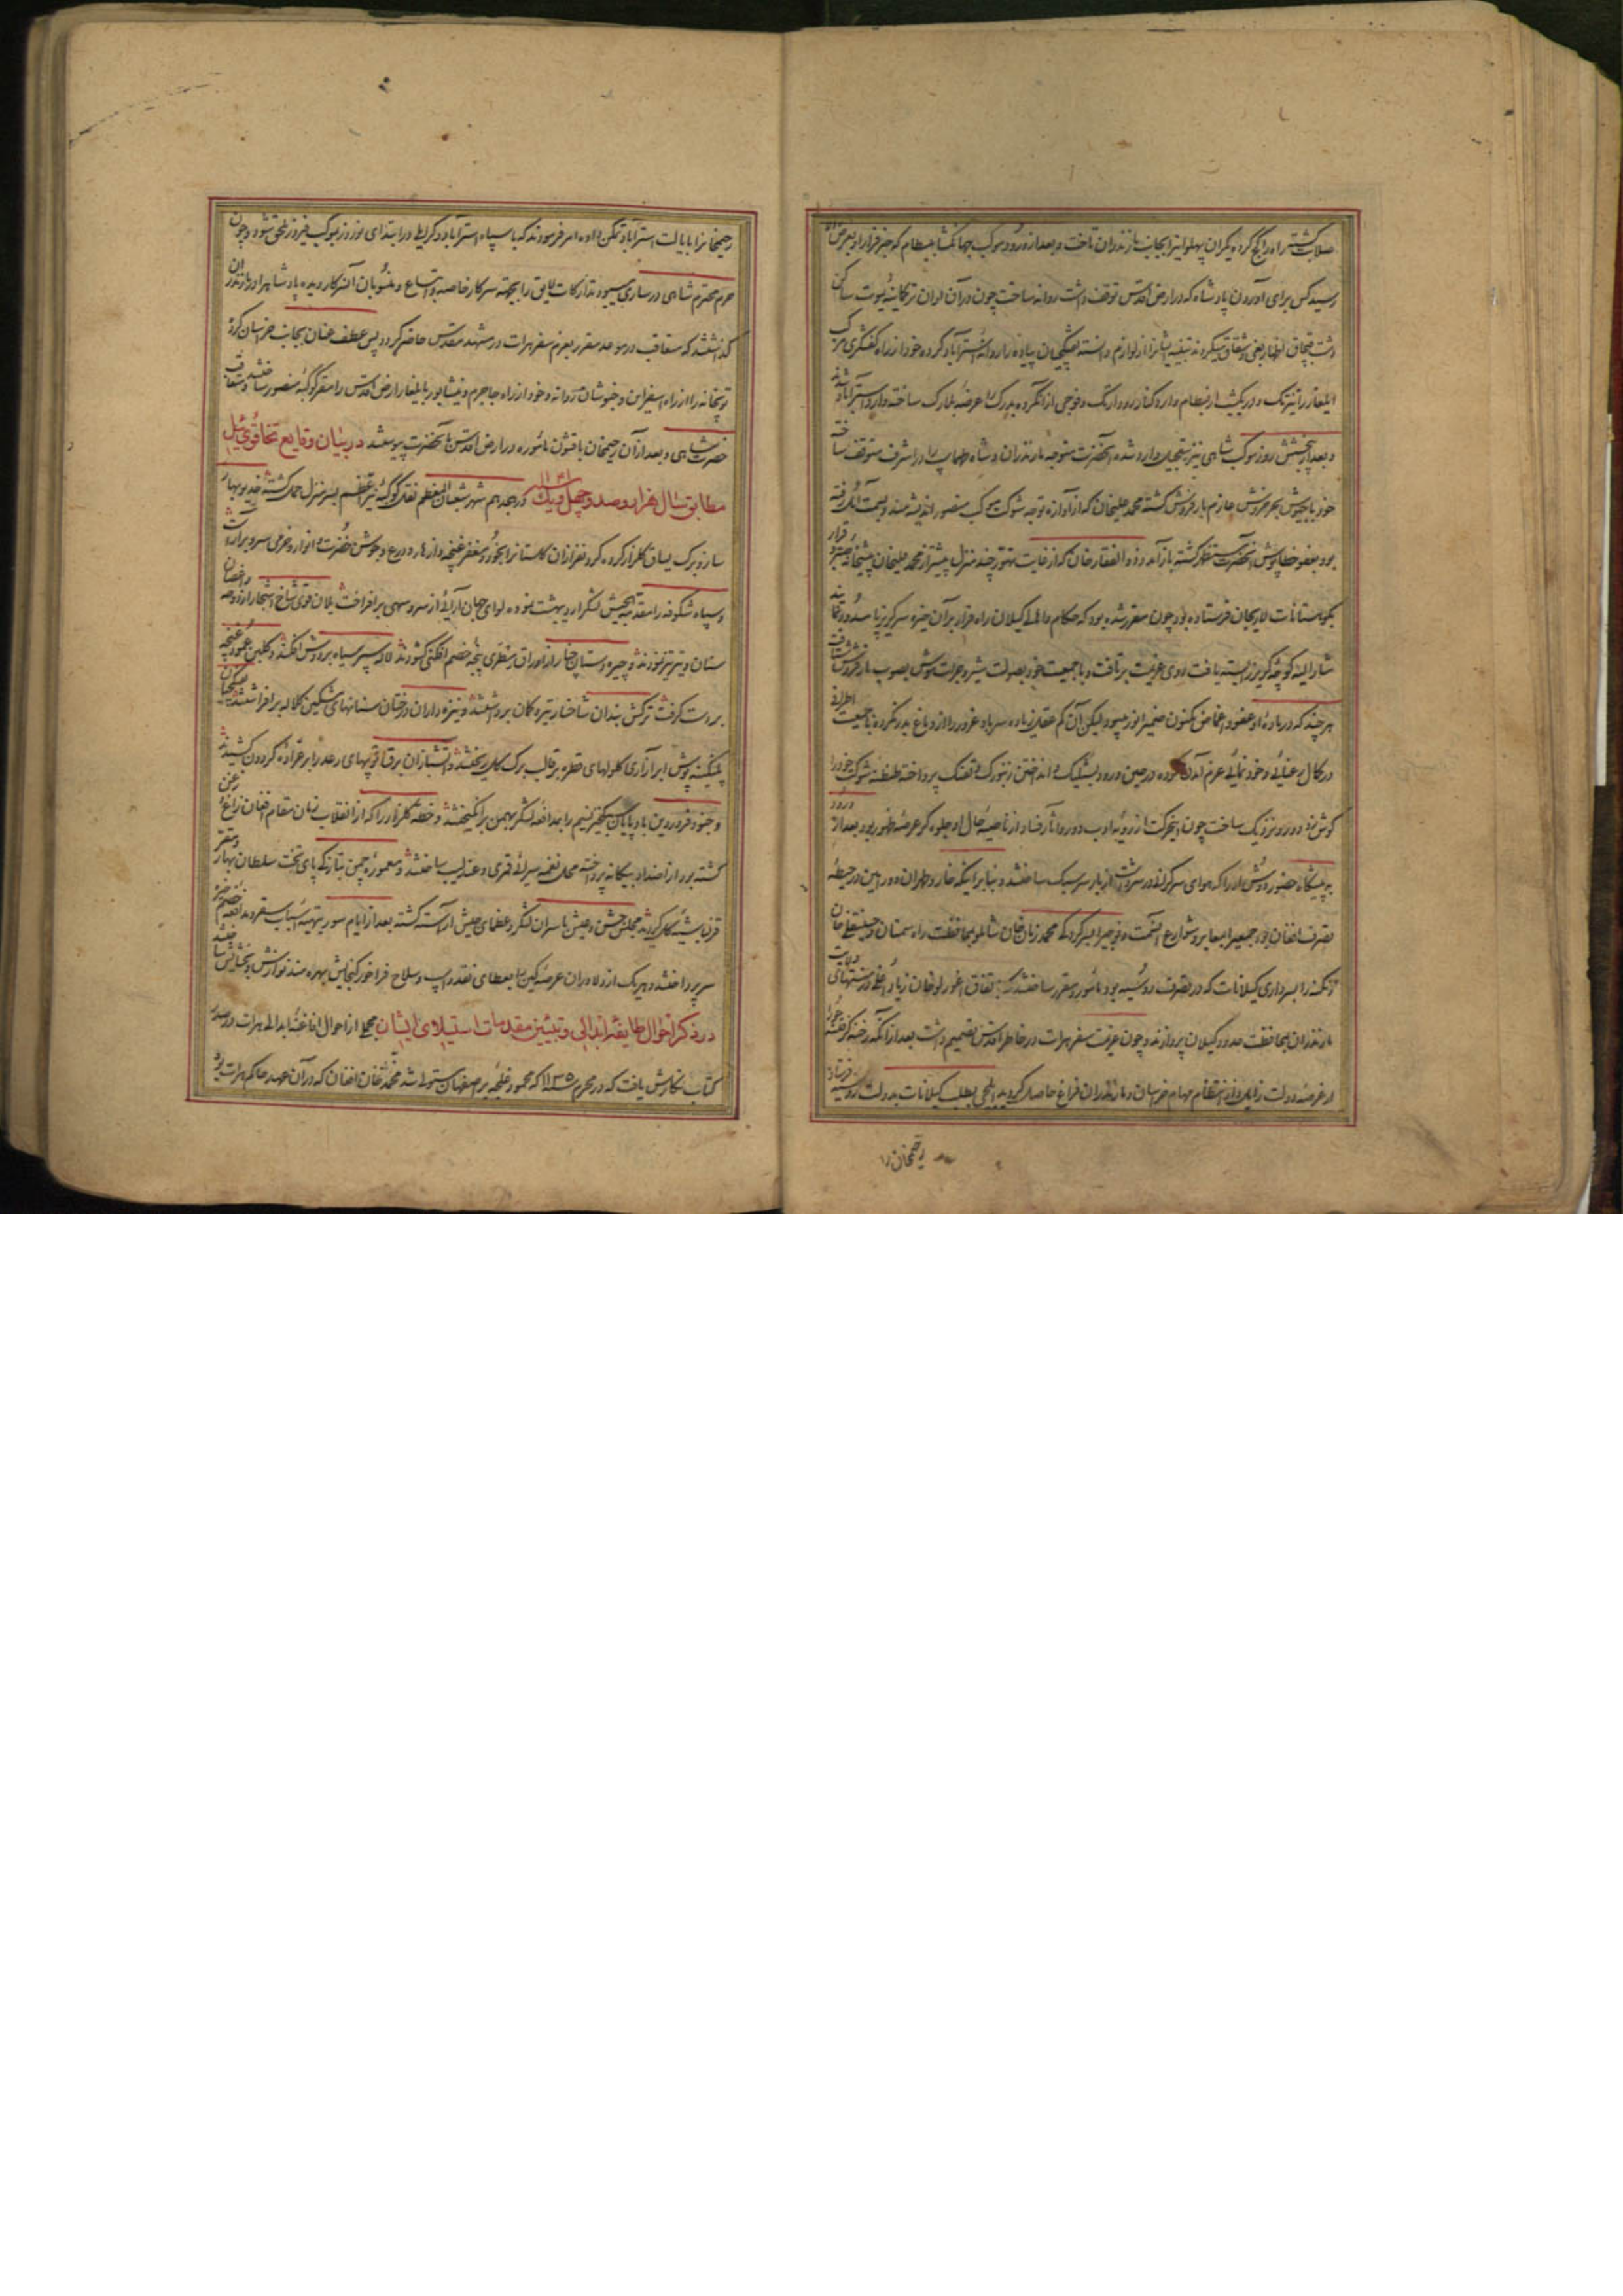 صلابت کشته راه را کج کرده یکران پهلو ایشرا بجانب مازندران تاخت و بعد از ورود موکب جهانگشا ببسطام که خبر فرار او بعرض
رسید کس برای آوردن پادشاه که در ارض اقدس توقف داشت روانه ساخت چون در آن اوان ترکمانیهٔ یموت ساکن
دشت قبچاق اظهار بغی و شقاق میکردند تنبیه ایشانرا از لوازم دانسته پیاده را روانهٔ استرآباد کرده خود از راه کفشگری مرکب
ایلغار را تیز تک و در یکشب از بسطام وارد کنار رود اترک و فوجی از آنگروه بدرک را عرضهٔ بلارک ساخته وارد استرآباد شدند
و بعد از شش روز موکب شاهی نیز بتعجیل وارد شده آنحضرت متوجه مازندران و شاه طهماسب را در اشرف متوقف ساخته
خود با جیوش بحر خروش عازم بارفروش گشته محمد علیخان که از آوازه توجه شوکت موکب منصور اندیشه مند و بسمت آمل رفته
بود بعفو خطاپوش آنحضرت مستظهر گشته باز آمد و ذوالفقار خان که از غایت تهور چند منزل پیشتر از محمد علیخان
بکوهستانات لاریجان فرستاده بود چون مقرر شده بود که حکام و اهالی گیلان راه فرار بر آن خیره سر گریزپا مسدود نمایند
مشار الیه کوچهٔ گریز را بسته یافت روی عزیمت برتافت و با جمعیت خود بصولت شیر و جرات موش بصوب بارفروش شتافت
هر چند که در بادهٔ او عفو و اغماض مکنون ضمیر انور میبود لیکن آن کم عقل زیاده سر باد غرور را از دماغ بدر نکرده با جمعیت اطراف
در کمال رعنائی و خودنمائی عزم آمدن کرده در حین ورود بشلیک و انداختن زنبورک و تفنگ پرداخته طنطنه شوکت خود را
گوش زد دور و نزدیک ساخت چون اینحرکت از رویه ادب دور و آثار فساد از ناصیهٔ حال او جلوه گر عرصهٔ ظهور بود بعد از ورود
به پیشگاه حضور دوش او را که هوای سرکردگی در سر داشت از بار سر سبک ساختند و بنابر اینکه خار و طهران و ورامین در حیطهٔ
تصرف افغان بود جمعی را معابر و شوارع آنسمت و فوجی را بسرکردگی محمد زمان خان شاملو بمحافظت راه سمنان و خان
ترکمنه را بسرداری گیلانات که در تصرف روسیه بود مامور و مقرر ساختند که باتفاق
مازندران بمحافظت حدود گیلان پردازند و چون عزیمت سفر هرات در خاطر اقدس تصمیم داشت بعد از آنکه رخنه گر فتنه
از عرصهٔ دولت زایل و از انتظام مهام خراسان و مازندران فراغ حاصل گردید ایلچی بطلب گیلانات بدولت روسیه فرستاده
رحیمخان را
رحیمخانرا بایالت استرآباد تمکن داده امر فرمودند که با سپاه استرآباد و کرایلی در ابتدای نوروز بموکب فیروز ملحق شود و چون
حرم محترم شاهی در ساری میبود تدارکات لایق را بجهة سرکار خاصه و اتباع و منسوبان آنسرکار دیده پادشاه را در مازندران
گذاشتند که متعاقب در موعد مقرر بعزم سفر هرات در مشهد مقدس حاضر گردد پس عطف عنان بجانب خراسان کرده
توپخانه را از راه اسفراین و خبوشان روانه و خود از راه جاجرم و نیشابور بایلغار ارض اقدس را مقر کوکبهٔ منصور ساختند و متعاقب
حضرت شاهی و بعد از آن رحیمخان با قشون ماموره در ارض اقدس بآنحضرت پیوستند در بیان وقایع تخاقوی ئیل
مطابق سال هزار و صد و چهل و یک ۱۱۴۱ در هجدهم شهر شعبان المعظم نقل کوکبهٔ نیر اعظم بسر منزل حمل گشته خدیو بهار
ساز و برک یساق گلزار کرده گرد نفرازان گلستانرا بخود و مغفر غنچه و ازهار و درع و جوشن خضرت و انوار
و سپاه شکوفه را مقدمة الجیش لشکر اردیبهشت نموده لوای جهان آرائی از سرو سهی برافراخت یلان قوی شاخ اشجار از دوحه و اغصان
سنان و تبر تیز نمودند و چیره دستان چنار از اوراق پنجهٔ خصم افکنی گشودند لاله سپر سیاه بر دوش افکند و گلبن عمود غنچه
بر دست گرفت ترکش بندان شاخسار تیر و کمان برداشتند و نیزه داران درختان سنانهای مشکین کلاله برافراشتند
پشمینه پوش ابر آزاری گلولهای قطره بر قالب برک گل ریختند و آتشبازان برق توپهای رعد را بر عرادهٔ گردون کشیدند
و جنود فروردین بادپایان سبکخیز نسیم را بمدافعهٔ لشکر بهمن برانگیختند و خطهٔ گلزار را که از انقلاب زمان مقام افغان زاغ و زغن
گشته بود از اضداد بیگانه پرداخته محل نغمه سرائی قمری و عندلیب ساختند و معمورهٔ چمن بتازگی پای تخت سلطان بهار و مقر
گردید مجلس جشن و عیش با سران لشکر و عظمای جیش آراسته گشته بعد از ایام سور بتهیهٔ اسباب سفر و مدافعهٔ خصم
پرداختند و هر یک از دلاوران عرصهٔ کین را بعطای نقد و اسب و سلاح فراخور گنجایش بهره مند نوازش و بخشایش ساختند
در ذکر احوال طایفهٔ ابدالی و تبیین مقدمات استیلای ایشان مجملی از احوال افاغنهٔ ابدالی هرات در صدر
کتاب نگارش یافت که در محرم سنه ۱۱۳۵ که محمود غلیجه بر اصفهان مستولی شد محمد خان افغان که در آن عهد حاکم هرات بود